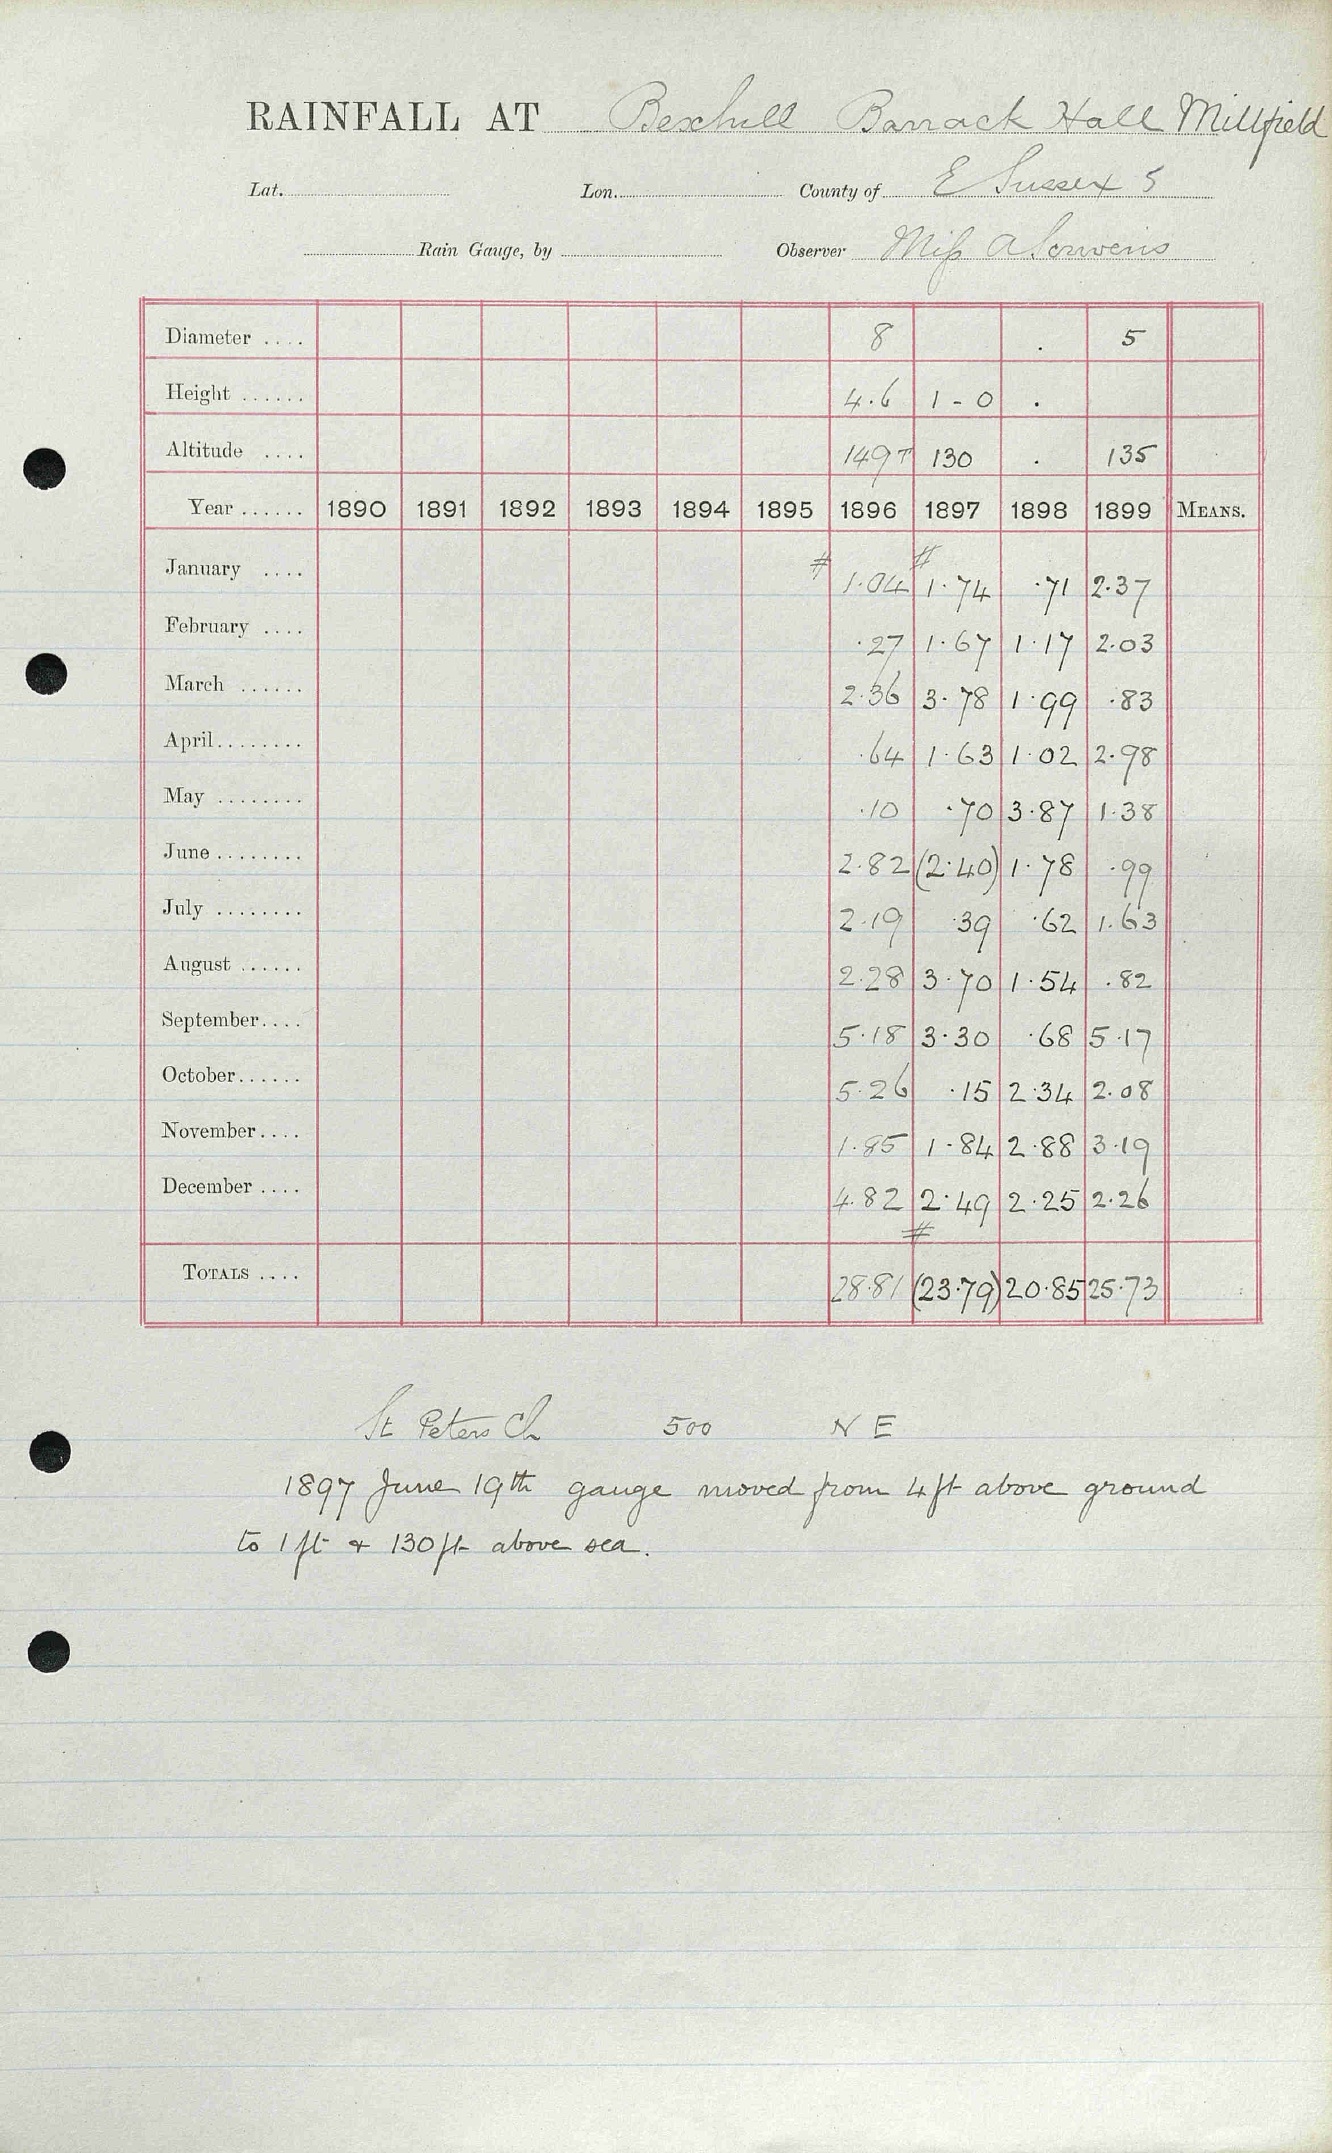 RAINFALL AT Bexhill Barrack Hall Millfield
Lat. Lon. County of E Sussex 5
Rain Gauge, by Observer Miss A
Diameter .... 8 . 5
Height ...... 4.6 1-0 .
Altitude .... 149T 130 . 135
Year ...... 1890 1891 1892 1893 1894 1895 1896 1897 1898 1899 MEANS.
January .... # 1.04 # 1.74 .71 2.37
February .... .27 1.67 1.17 2.03
March ...... 2.36 3.78 1.99 .83
April........ .64 1.63 1.02 2.98
May ........ .10 .70 3.87 1.38
June........ 2.82 (2.40) 1.78 .99
July ........ 2.19 .39 .62 1.63
August ...... 2.28 3.70 1.54 .82
September.... 5.18 3.30 .68 5.17
October...... 5.26 .15 2.34 2.08
November.... 1.85 1.84 2.88 3.19
December .... 4.82 2.49 2.25 2.26
#
TOTALS .... 28.81 (23.79) 20.85 25.73
St Peters Ch 500 N E
1897 June 19th gauge moved from 4ft above ground
to 1ft & 130ft above sea.